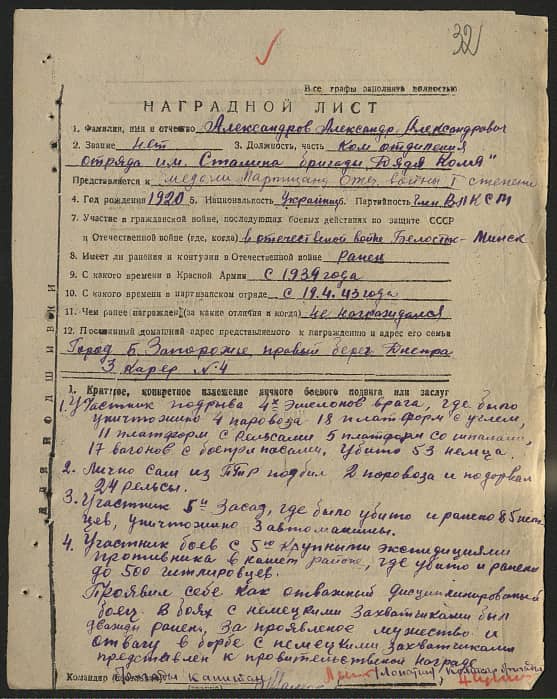 32
Все графы заполнять полностью
НАГРАДНОЙ ЛИСТ
1. Фамилия, имя и отчество Александров Александр Александрович
2. Звание нет 3. Должность, часть Ком. отделения
отряда им. Сталина бригады "Дядя Коля"
Представляется к медали Партизану Отеч. войны I степени
4. Год рождения 1920 5. Национальность Украинец 6. Партийность Член ВЛКСМ
7. Участие в гражданской войне, последующих боевых действиях по защите СССР
и Отечественной войне (где, когда) в отечественой войне Белосток-Минск
8. Имеет ли ранения и контузии в Отечественной войне ранен
9. С какого времени в Красной Армии с 1939 года
10. С какого времени в партизанском отряде с 19.4.43 года
11. Чем ранее награжден (за какие отличия и когда) не награждался
12. Постоянный домашний адрес представляемого к награждению и адрес его семьи
Город Б. Запорожье правый берег Днепра
3 карер N 4
ДЛЯ ПОДШИВКИ
1. Краткое, конкретное изложение личного боевого подвига или заслуг
1. Участник подрыва 4х эшелонов врага, где было
уничтожино 4 паровоза 18 платформ с углем,
11 платформ с рельсами 5 платформ со шпалами,
17 вагонов с боеприпасами. Убито 53 немца.
2. Лично сам из ПТР подбил 2 паровоза и подорвал
24 рельсы.
3. Участник 5и засад, где было убито и ранено 85 нем-
цев, уничтожино 3 автомашины.
4. Участник боев с 5ю крупными экспидициями
противника в нашем районе, где убито и ранено
до 500 гитлировцев.
Проявил себя как отважный дисциплинированый
боец. В боях с немецкими захватчиками был
дважды ранен, за проявленое мужество и
отвагу в борбе с немецкими захватчиками
представлен к правительственой награде.
Командир бригады Капитан